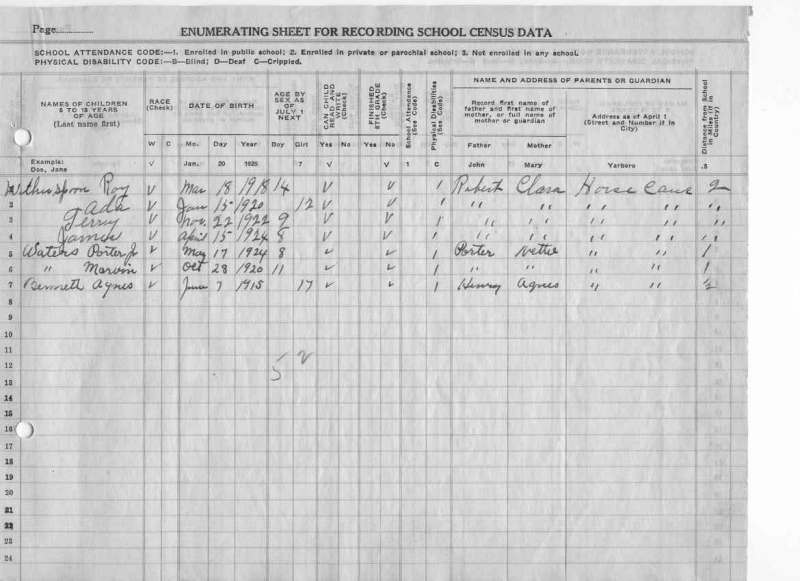 Page
ENUMERATING SHEET FOR RECORDING SCHOOL CENSUS DATA
SCHOOL ATTENDANCE CODE:—1. Enrolled in public school; 2. Enrolled in private or parochial school; 3. Not enrolled in any school.
PHYSICAL DISABILITY CODE:—B—Blind; D—Deaf C—Crippled.
NAMES OF CHILDREN 5 TO 18 YEARS OF AGE (Last name first)
RACE (Check)
DATE OF BIRTH
AGE BY SEX AS OF JULY 1 NEXT
CAN CHILD READ AND WRITE (Check)
FINISHED 8TH GRADE (Check)
School Attendance (See Code)
Physical Disabilities (See Code)
NAME AND ADDRESS OF PARENTS OR GUARDIAN
Record first name of father and first name of mother, or full name of mother or guardian
Address as of April 1 (Street and Number if in City)
Distance from School in Miles (if in Country)
W C Mo. Day Year Boy Girl Yes No Yes No Father Mother
Example: Doe, Jane V Jan. 20 1925 7 V V 1 C John Mary Yarboro .5
Roy V Mar 18 1918 14 V V 1 Robert Clara Horse Cave 2
2 Ada V Jan 15 1920 12 V V 1 " " " " "
3 V Nov. 22 1922 9 V V 1 " " " " "
4 James V April 15 1924 8 V V 1 " " " " "
5 Waters Porter Jr V May 17 1924 8 V V 1 Porter Nettie " " 1
6 " Marvin V Oct 28 1920 11 V V 1 " " " " 1
7 Bennett Agnes V June 7 1915 17 V V 1 Henry Agnes " " ½
8
9
10
11
12 5 2
13
14
15
16
17
18
19
20
21
22
23
24